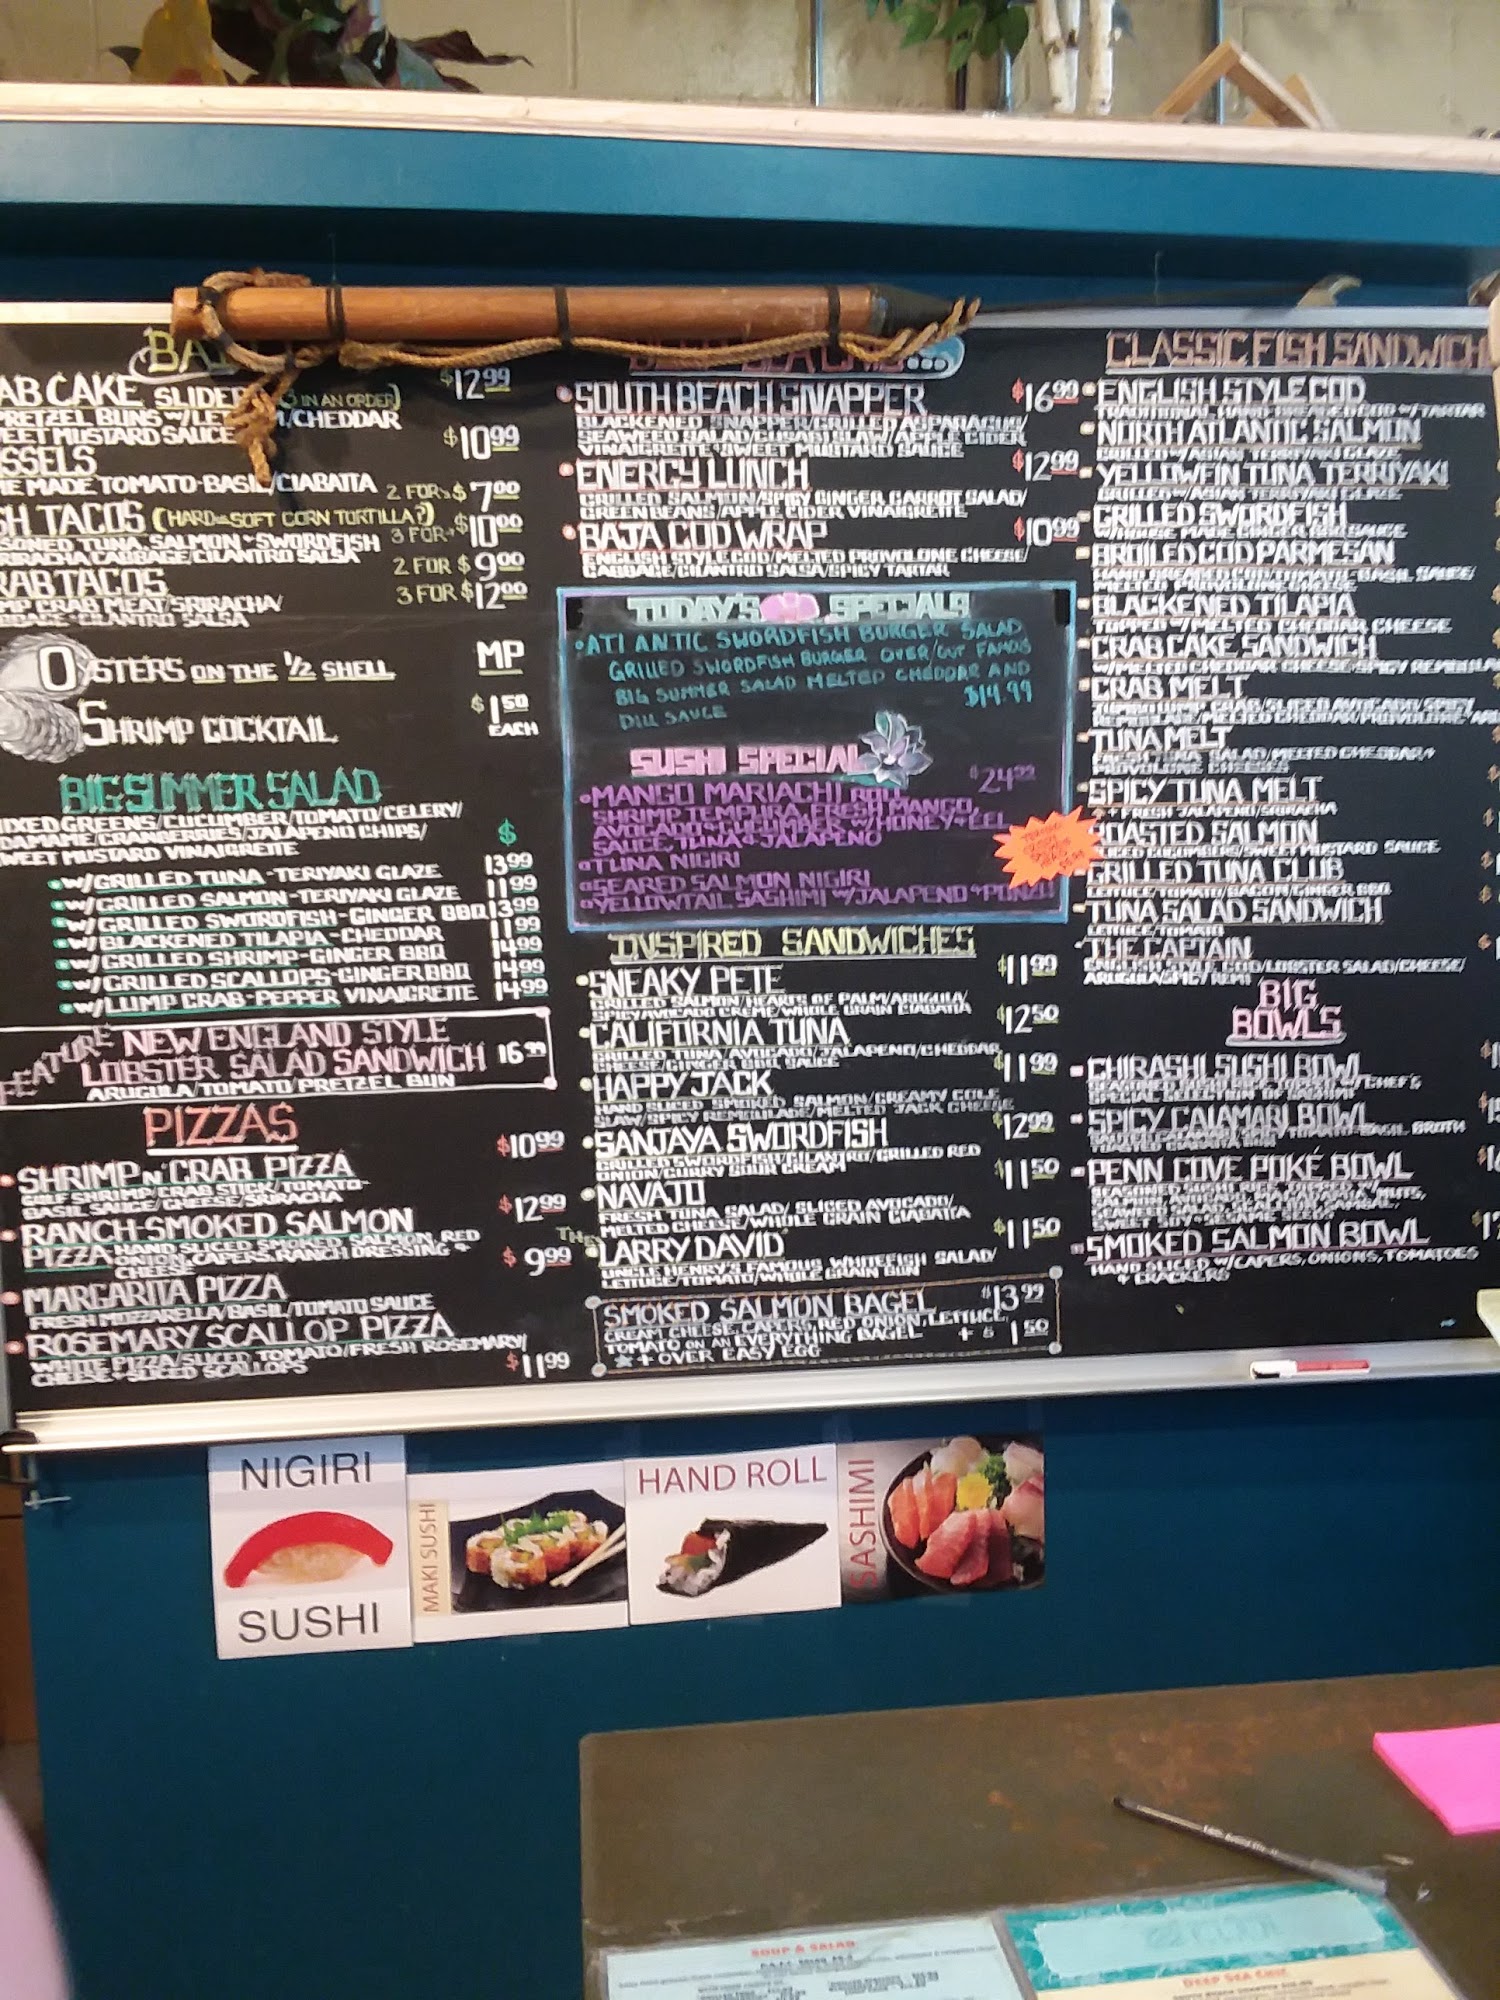 12.99
CAKE SLIDER IN AN ORDER)
PRETZEL BUNS W/ /CHEDDAR
MUSTARD SAUCE
$10.99
MADE TOMATO-BASIL/CIABATTA
TACOS (HARD OR SOFT CORN TORTILLA?)
2 FOR $7.00
3 FOR $10.00
TUNA, SALMON SWORDFISH
CABBAGE/CILANTRO SALSA
TACOS
2 FOR $9.00
3 FOR $12.00
CRAB MEAT/SRIRACHA/
CILANTRO SALSA
OYSTERS ON THE 1/2 SHELL MP
SHRIMP COCKTAIL $1.50 EACH
BIG SUMMER SALAD
GREENS/CUCUMBER/TOMATO/CELERY/
/CRANBERRIES/JALAPENO CHIPS/
MUSTARD VINAIGRETTE
$
W/GRILLED TUNA-TERIYAKI GLAZE 13.99
W/GRILLED SALMON-TERIYAKI GLAZE 11.99
W/GRILLED SWORDFISH-GINGER BBQ 13.99
W/BLACKENED TILAPIA-CHEDDAR 11.99
W/GRILLED SHRIMP-GINGER BBQ 14.99
W/GRILLED SCALLOPS-GINGER BBQ 14.99
W/LUMP CRAB-PEPPER VINAIGRETTE 14.99
FEATURE NEW ENGLAND STYLE
LOBSTER SALAD SANDWICH 16.99
ARUGULA/TOMATO/PRETZEL BUN
PIZZAS
SHRIMP N' CRAB PIZZA $10.99
GULF SHRIMP/CRAB STICK/TOMATO-
BASIL SAUCE/CHEESE/SRIRACHA
RANCH-SMOKED SALMON $12.99
PIZZA-HAND SLICED SMOKED SALMON, RED
ONION, CAPERS, RANCH DRESSING +
CHEESE
MARGARITA PIZZA $9.99
FRESH MOZZARELLA/BASIL/TOMATO SAUCE
ROSEMARY SCALLOP PIZZA
WHITE PIZZA/SLICED TOMATO/FRESH ROSEMARY/
CHEESE + SLICED SCALLOPS $11.99
SOUTH BEACH SNAPPER $16.99
BLACKENED SNAPPER/GRILLED ASPARAGUS/
SEAWEED SALAD/CUSABI SLAW/APPLE CIDER
VINAIGRETTE + SWEET MUSTARD SAUCE
ENERGY LUNCH $12.99
GRILLED SALMON/SPICY GINGER CARROT SALAD/
GREEN BEANS/APPLE CIDER VINAIGRETTE
BAJA COD WRAP $10.99
ENGLISH STYLE COD/MELTED PROVOLONE CHEESE/
CABBAGE/CILANTRO SALSA/SPICY TARTAR
TODAY'S SPECIALS
ATLANTIC SWORDFISH BURGER SALAD
GRILLED SWORDFISH BURGER OVER OUR FAMOUS
BIG SUMMER SALAD MELTED CHEDDAR AND
DILL SAUCE $14.99
SUSHI SPECIAL
$24.99
MANGO MARIACHI ROLL
SHRIMP TEMPURA, FRESH MANGO,
AVOCADO + CUCUMBER W/HONEY + EEL
SAUCE, TUNA + JALAPENO
TUNA NIGIRI
SEARED SALMON NIGIRI
YELLOWTAIL SASHIMI W/JALAPENO + PONZU
INSPIRED SANDWICHES
SNEAKY PETE $11.99
GRILLED SALMON/HEARTS OF PALM/ARUGULA/
SPICY AVOCADO CREME/WHOLE GRAIN CIABATTA
CALIFORNIA TUNA $12.50
GRILLED TUNA/AVOCADO/JALAPENO/CHEDDAR
CHEESE/GINGER BBQ SAUCE
HAPPY JACK $11.99
HAND SLICED SMOKED SALMON/CREAMY COLE
SLAW/SPICY REMOULADE/MELTED JACK CHEESE
SANTAYA SWORDFISH $12.99
GRILLED SWORDFISH/CILANTRO/GRILLED RED
ONION/CURRY SOUR CREAM
NAVAJO $11.50
FRESH TUNA SALAD/SLICED AVOCADO/
MELTED CHEESE/WHOLE GRAIN CIABATTA
THE LARRY DAVID $11.50
UNCLE HENRY'S FAMOUS WHITEFISH SALAD/
LETTUCE/TOMATO/WHOLE GRAIN BUN
SMOKED SALMON BAGEL $13.99
CREAM CHEESE, CAPERS, RED ONION, LETTUCE,
TOMATO ON AN EVERYTHING BAGEL
+ OVER EASY EGG + $1.50
CLASSIC FISH SANDWICH
ENGLISH STYLE COD
TRADITIONAL HAND BREADED COD W/TARTAR
NORTH ATLANTIC SALMON
GRILLED W/ASIAN TERIYAKI GLAZE
YELLOWFIN TUNA TERRIYAKI
GRILLED W/ASIAN TERIYAKI GLAZE
GRILLED SWORDFISH
W/HOUSE MADE GINGER BBQ SAUCE
BROILED COD PARMESAN
HAND BREADED COD/TOMATO-BASIL SAUCE/
MELTED PROVOLONE CHEESE
BLACKENED TILAPIA
TOPPED W/MELTED CHEDDAR CHEESE
CRAB CAKE SANDWICH
W/MELTED CHEDDAR CHEESE/SPICY
CRAB MELT
JUMBO LUMP CRAB/SLICED AVOCADO/SPICY
REMOULADE/MELTED CHEDDAR/PROVOLONE
TUNA MELT
FRESH TUNA SALAD/MELTED CHEDDAR +
PROVOLONE CHEESES
SPICY TUNA MELT
+ FRESH JALAPENO/SRIRACHA
ROASTED SALMON
SLICED CUCUMBERS/SWEET MUSTARD SAUCE
GRILLED TUNA CLUB
LETTUCE/TOMATO/BACON/GINGER BBQ
TUNA SALAD SANDWICH
LETTUCE/TOMATO
THE CAPTAIN
ENGLISH STYLE COD/LOBSTER SALAD/CHEESE/
ARUGULA/SPICY REMI
BIG
BOWLS
CHIRASHI SUSHI BOWL
SEASONED SUSHI RICE TOPPED W/CHEF'S
SPECIAL SELECTION OF SASHIMI
SPICY CALAMARI BOWL
BASIL BROTH
TOASTED CIABATTA BUN
PENN COVE POKÉ BOWL
SWEET SOY + SESAME
SMOKED SALMON BOWL
HAND SLICED W/CAPERS, ONIONS, TOMATOES
+ CRACKERS
NIGIRI
SUSHI
MAKI SUSHI
HAND ROLL
SASHIMI
SOUP & SALAD
DEEP SEA CHIC